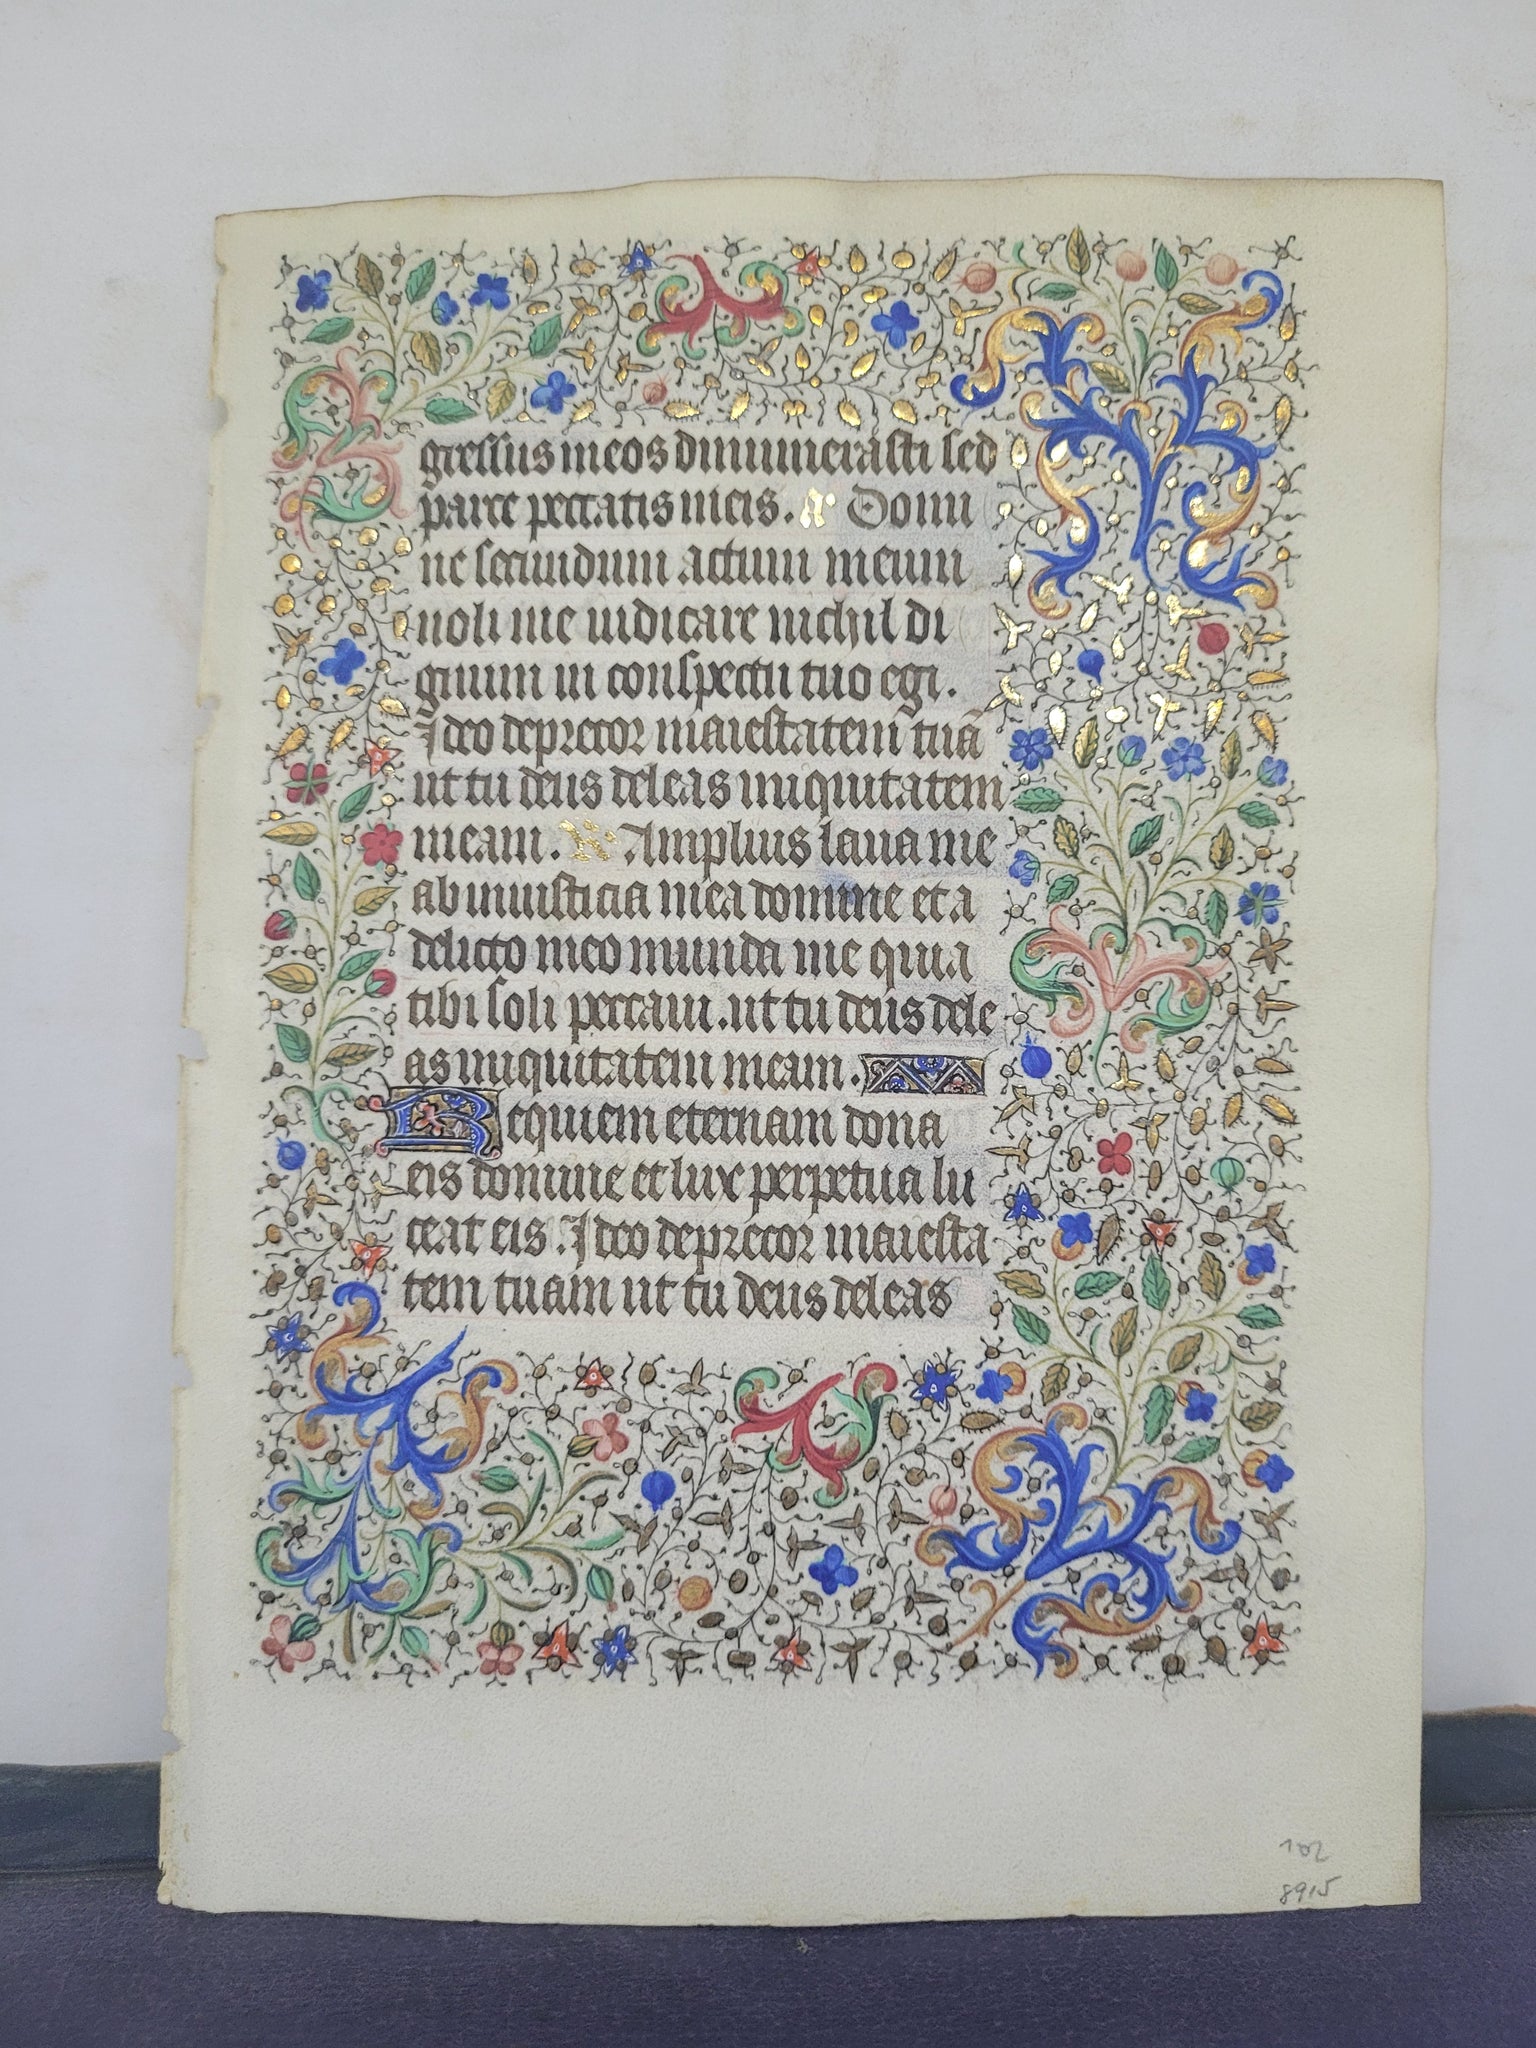 gressus meos dinumerasti sed
parce peccatis meis. R Domi
ne secundum actum meum
noli me iudicare nichil di
gnum in conspectu tuo egi.
Ideo deprecor maiestatem tuã
ut tu deus deleas iniquitatem
meam. V Amplius laua me
ab iniusticia mea domine et a
delicto meo munda me quia
tibi soli peccaui. ut tu deus dele
as iniquitatem meam.
Requiem eternam dona
eis domine et lux perpetua lu
ceat eis. Ideo deprecor maiesta
tem tuam ut tu deus deleas
102
8915